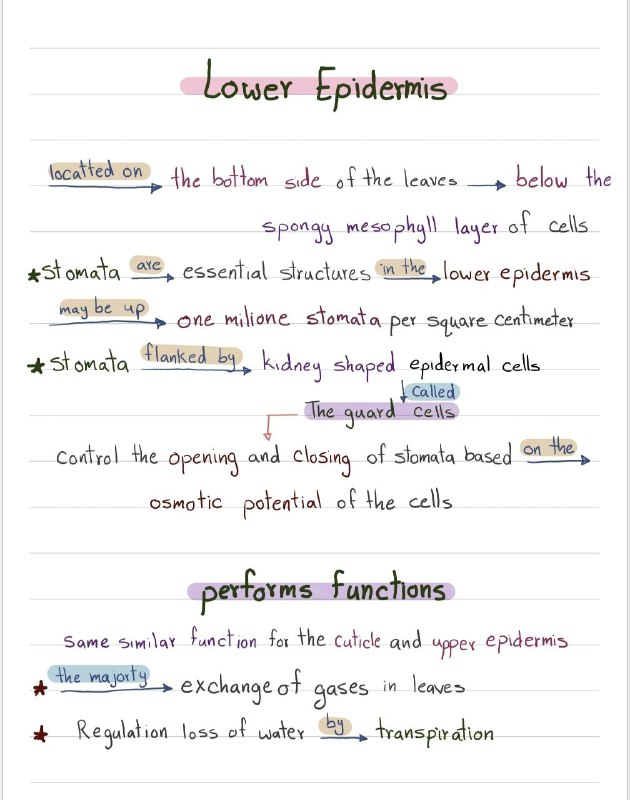 Lower Epidermis
locatted on the bottom side of the leaves → below the
spongy mesophyll layer of cells
★ Stomata are essential structures in the lower epidermis
may be up one milione stomata per square centimeter
★ Stomata flanked by kidney shaped epidermal cells
called
The guard cells
control the opening and closing of stomata based on the
osmotic potential of the cells
performs functions
Same similar function for the cuticle and upper epidermis
★ the majorty exchange of gases in leaves
★ Regulation loss of water by transpiration